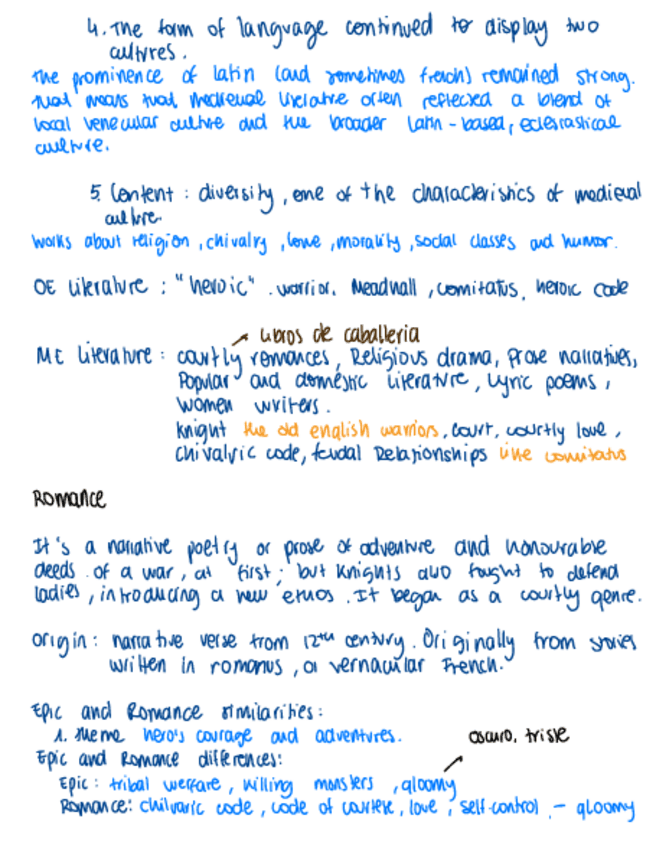 4. The form of language continued to display two
cultures.
The prominence of latin (and sometimes french) remained strong.
That means that medieval literature often reflected a blend of
local venecular culture and the broader latin-based, eclesiastical
culture.
5. Content: diversity, one of the characteristics of medieval
culture.
Works about religion, chivalry, love, morality, social classes and humor.
OE literature: "heroic". warrior. Meadhall, comitatus, heroic code
libros de caballería
ME literature: courtly romances, Religious drama, Prose narratives,
Popular and domestic literature, lyric poems,
women writers.
Knight the old english warriors, court, courtly love,
chivalric code, feudal Relationships like comitatus
Romance
It's a narrative poetry or prose of adventure and honourable
deeds of a war, at first; but knights also fought to defend
ladies, introducing a new ethos. It began as a courtly genre.
Origin: narrative verse from 12th century. Originally from stories
written in romanus, or vernacular French.
Epic and Romance similarities:
1. theme hero's courage and adventures.
oscuro, triste
Epic and Romance differences:
Epic: tribal warfare, killing monsters, gloomy
Romance: chilvaric code, code of love, self-control, - gloomy